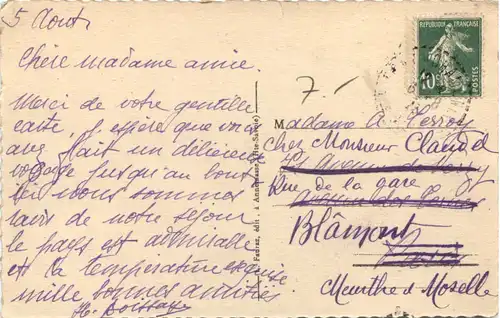 5 Aout
Chère madame amie
Merci de votre gentille
carte, j'espère que vous
avez fait un délicieux
voyage jusqu'au bout
Ici nous sommes
ravis de notre sejour
le pays est admirable
et la température exquise
mille bonnes amitiés
REPUBLIQUE FRANÇAISE
10c
POSTES
7.-
Madame A
chez Monsieur Claudel
Rue de la gare
Blâmont
Meurthe & Moselle
édit. à Annemasse (Hte-Savoie)